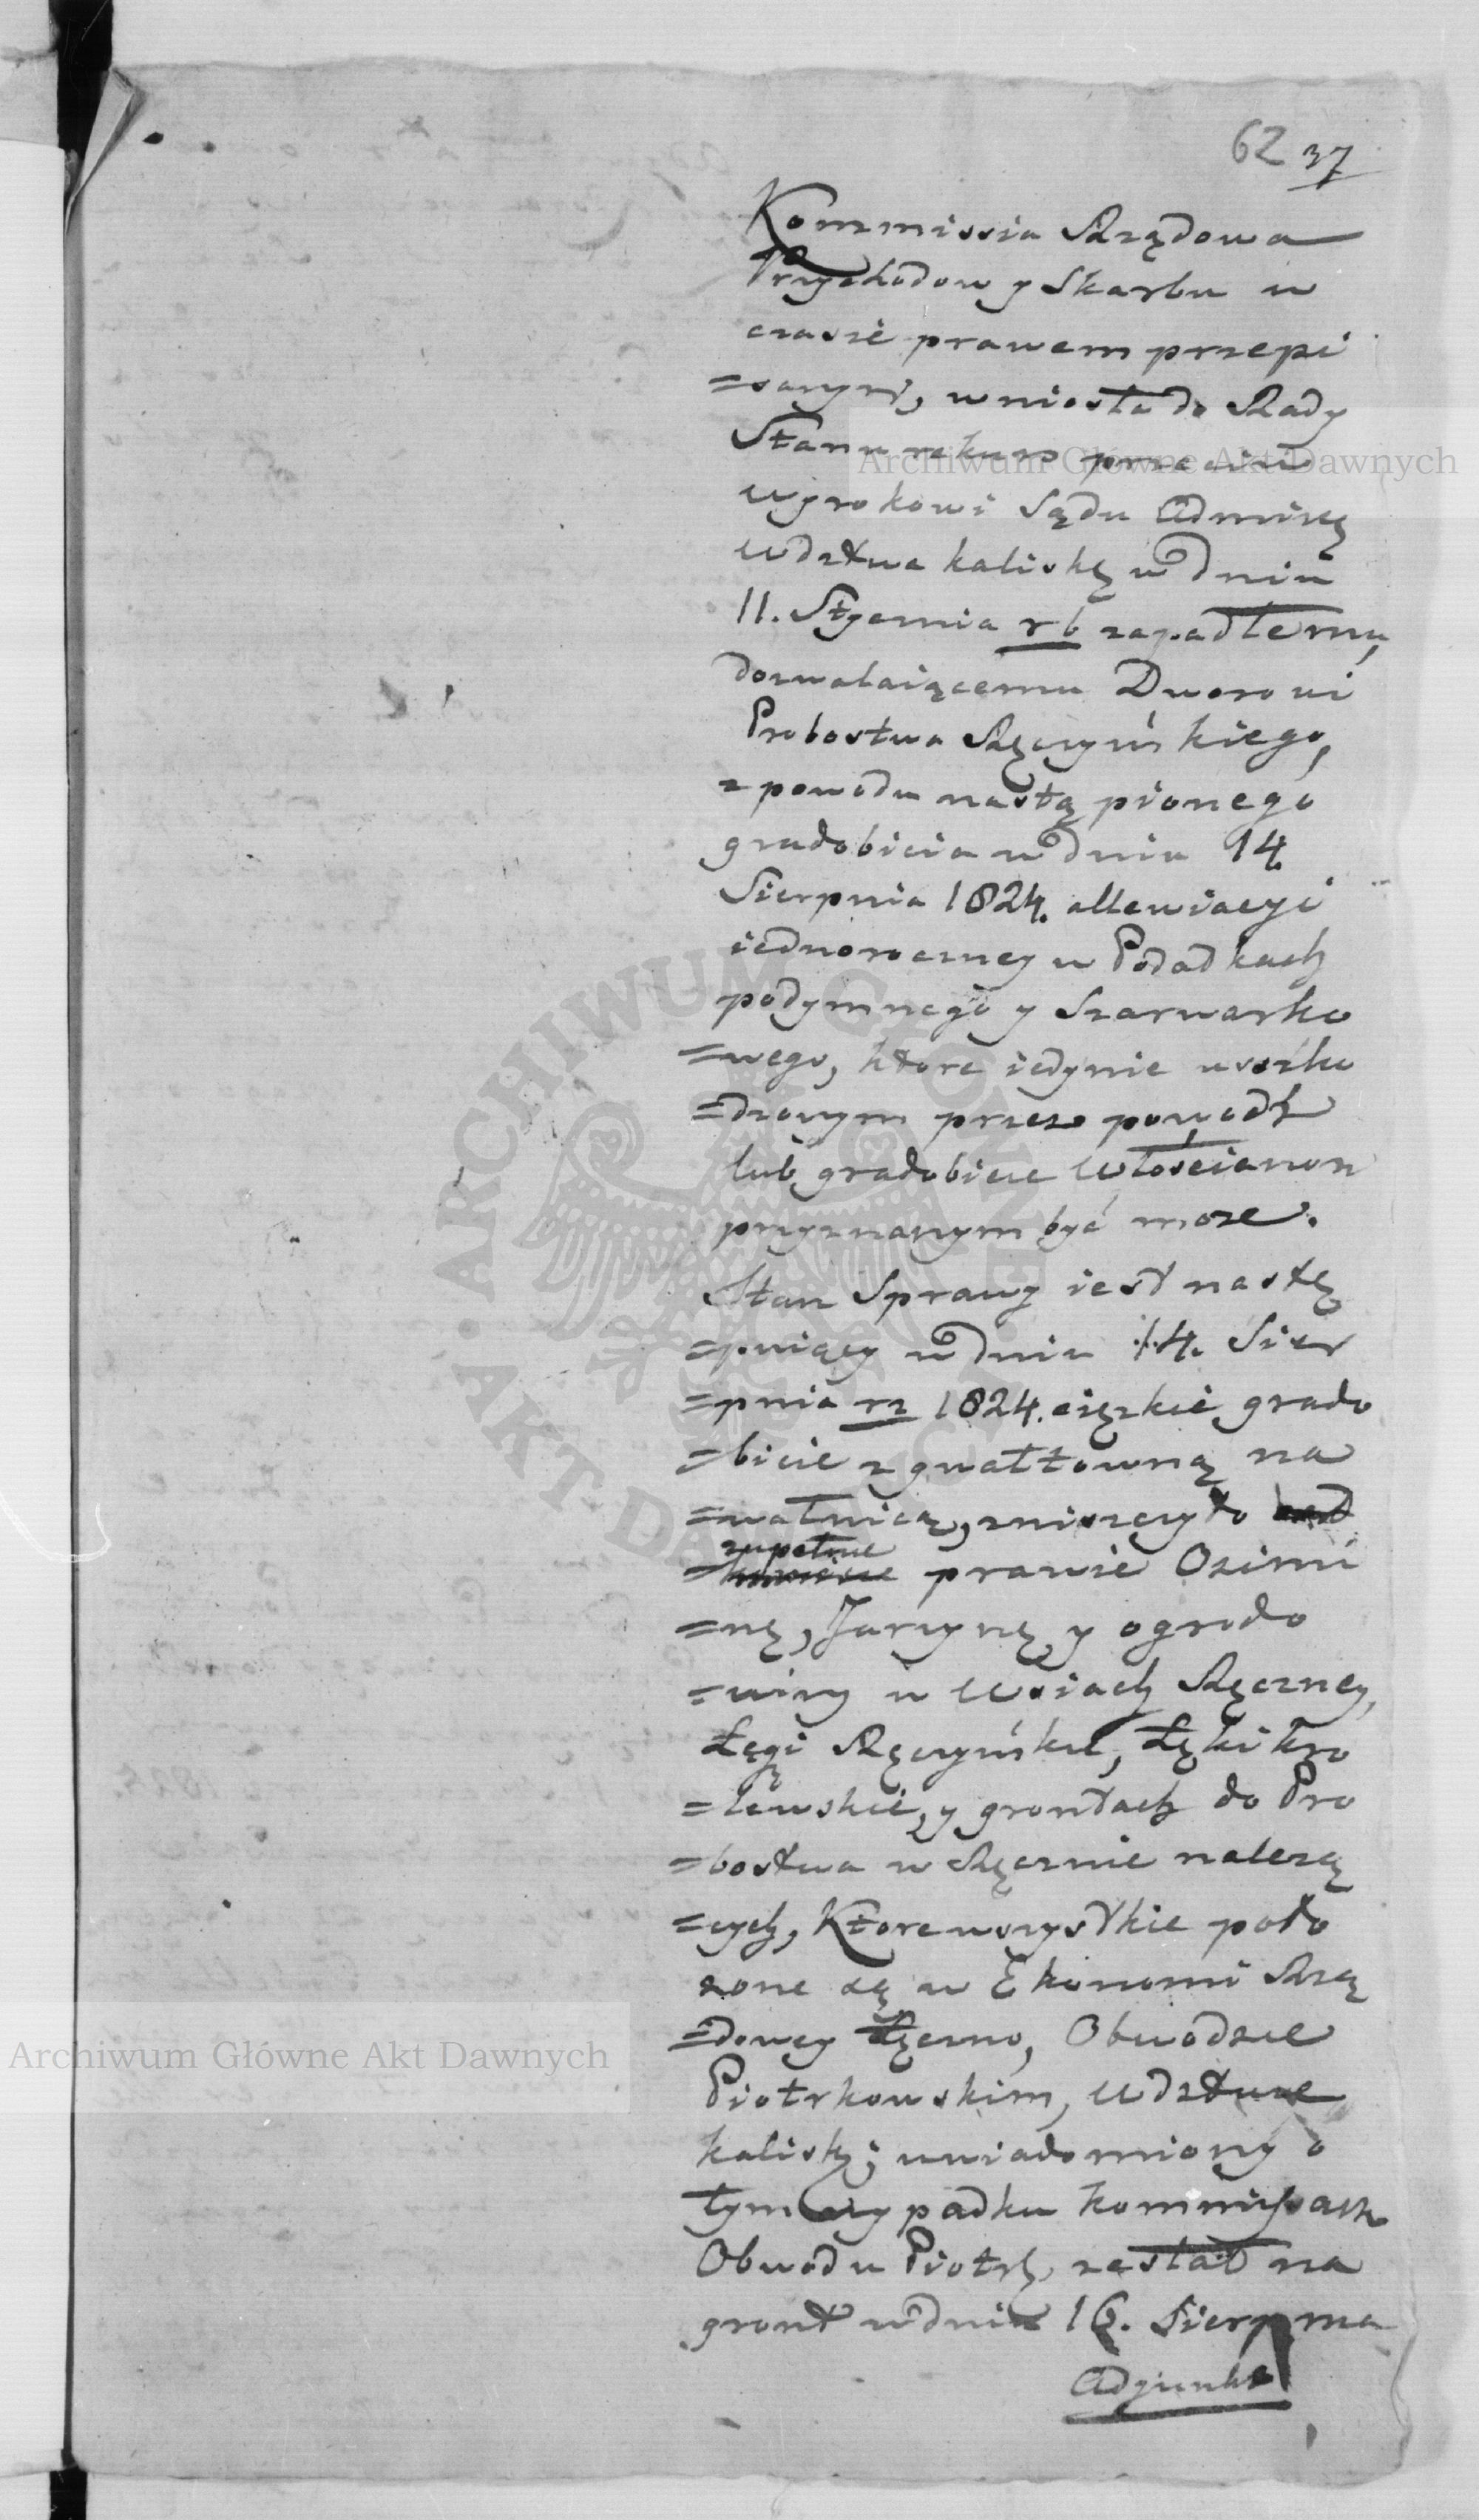 62 37
Kommissia Rządowa
Przychodow y Skarbu w
czasie prawem przepi
=sanym, wniosła do Rady
Stanu rekurs przeciw
wyrokowi Sądu Admiskę
Wdztwa kaliskę w dniu
11. Stycznia rb zapadłemu,
dozwalaiącemu Dworowi
Probostwa Ręczyńskiego,
z powodu nastąpionego
gradobicia w dniu 14
Sierpnia 1824. allewiacyi
iednoroczney w Podatkach
podymnego y Szarwarko
=wego, ktore iedynie uszko
=dzonym przez powodź
lub gradobicie Włościanon
przyznanym być moze.
Stan Sprawy iest nastę
=puiący w dniu 14. Sier
=pnia rz 1824. cięzkie grado
=bicie z gwałtowną na
=wałnicą, zniszczyło
zupełnie
= prawie Ozimi
=nę, Jarzynę, y ogrodo
=winy w Wsiach Ręczney,
Łęgi Ręczyńskie, Łęki kro
=lewskie, y grontach do Pro
=bostwa w Ręcznie nalezą
=cych, Ktore wszystkie poło
zone są w Ekonomi Rzą
=dowey Łęczno, Obwodzie
Piotrkowskim, Wdztwie
kalisk; uwiadomiony o
tym wypadku kommissarz
Obwodu Piotrk, zesłał na
gront w dniu 16. Sierpnia
Adjunkta
Archiwum Główne Akt Dawnych
Archiwum Główne Akt Dawnych
ARCHIWUM GŁÓWNE AKT DAWNYCH